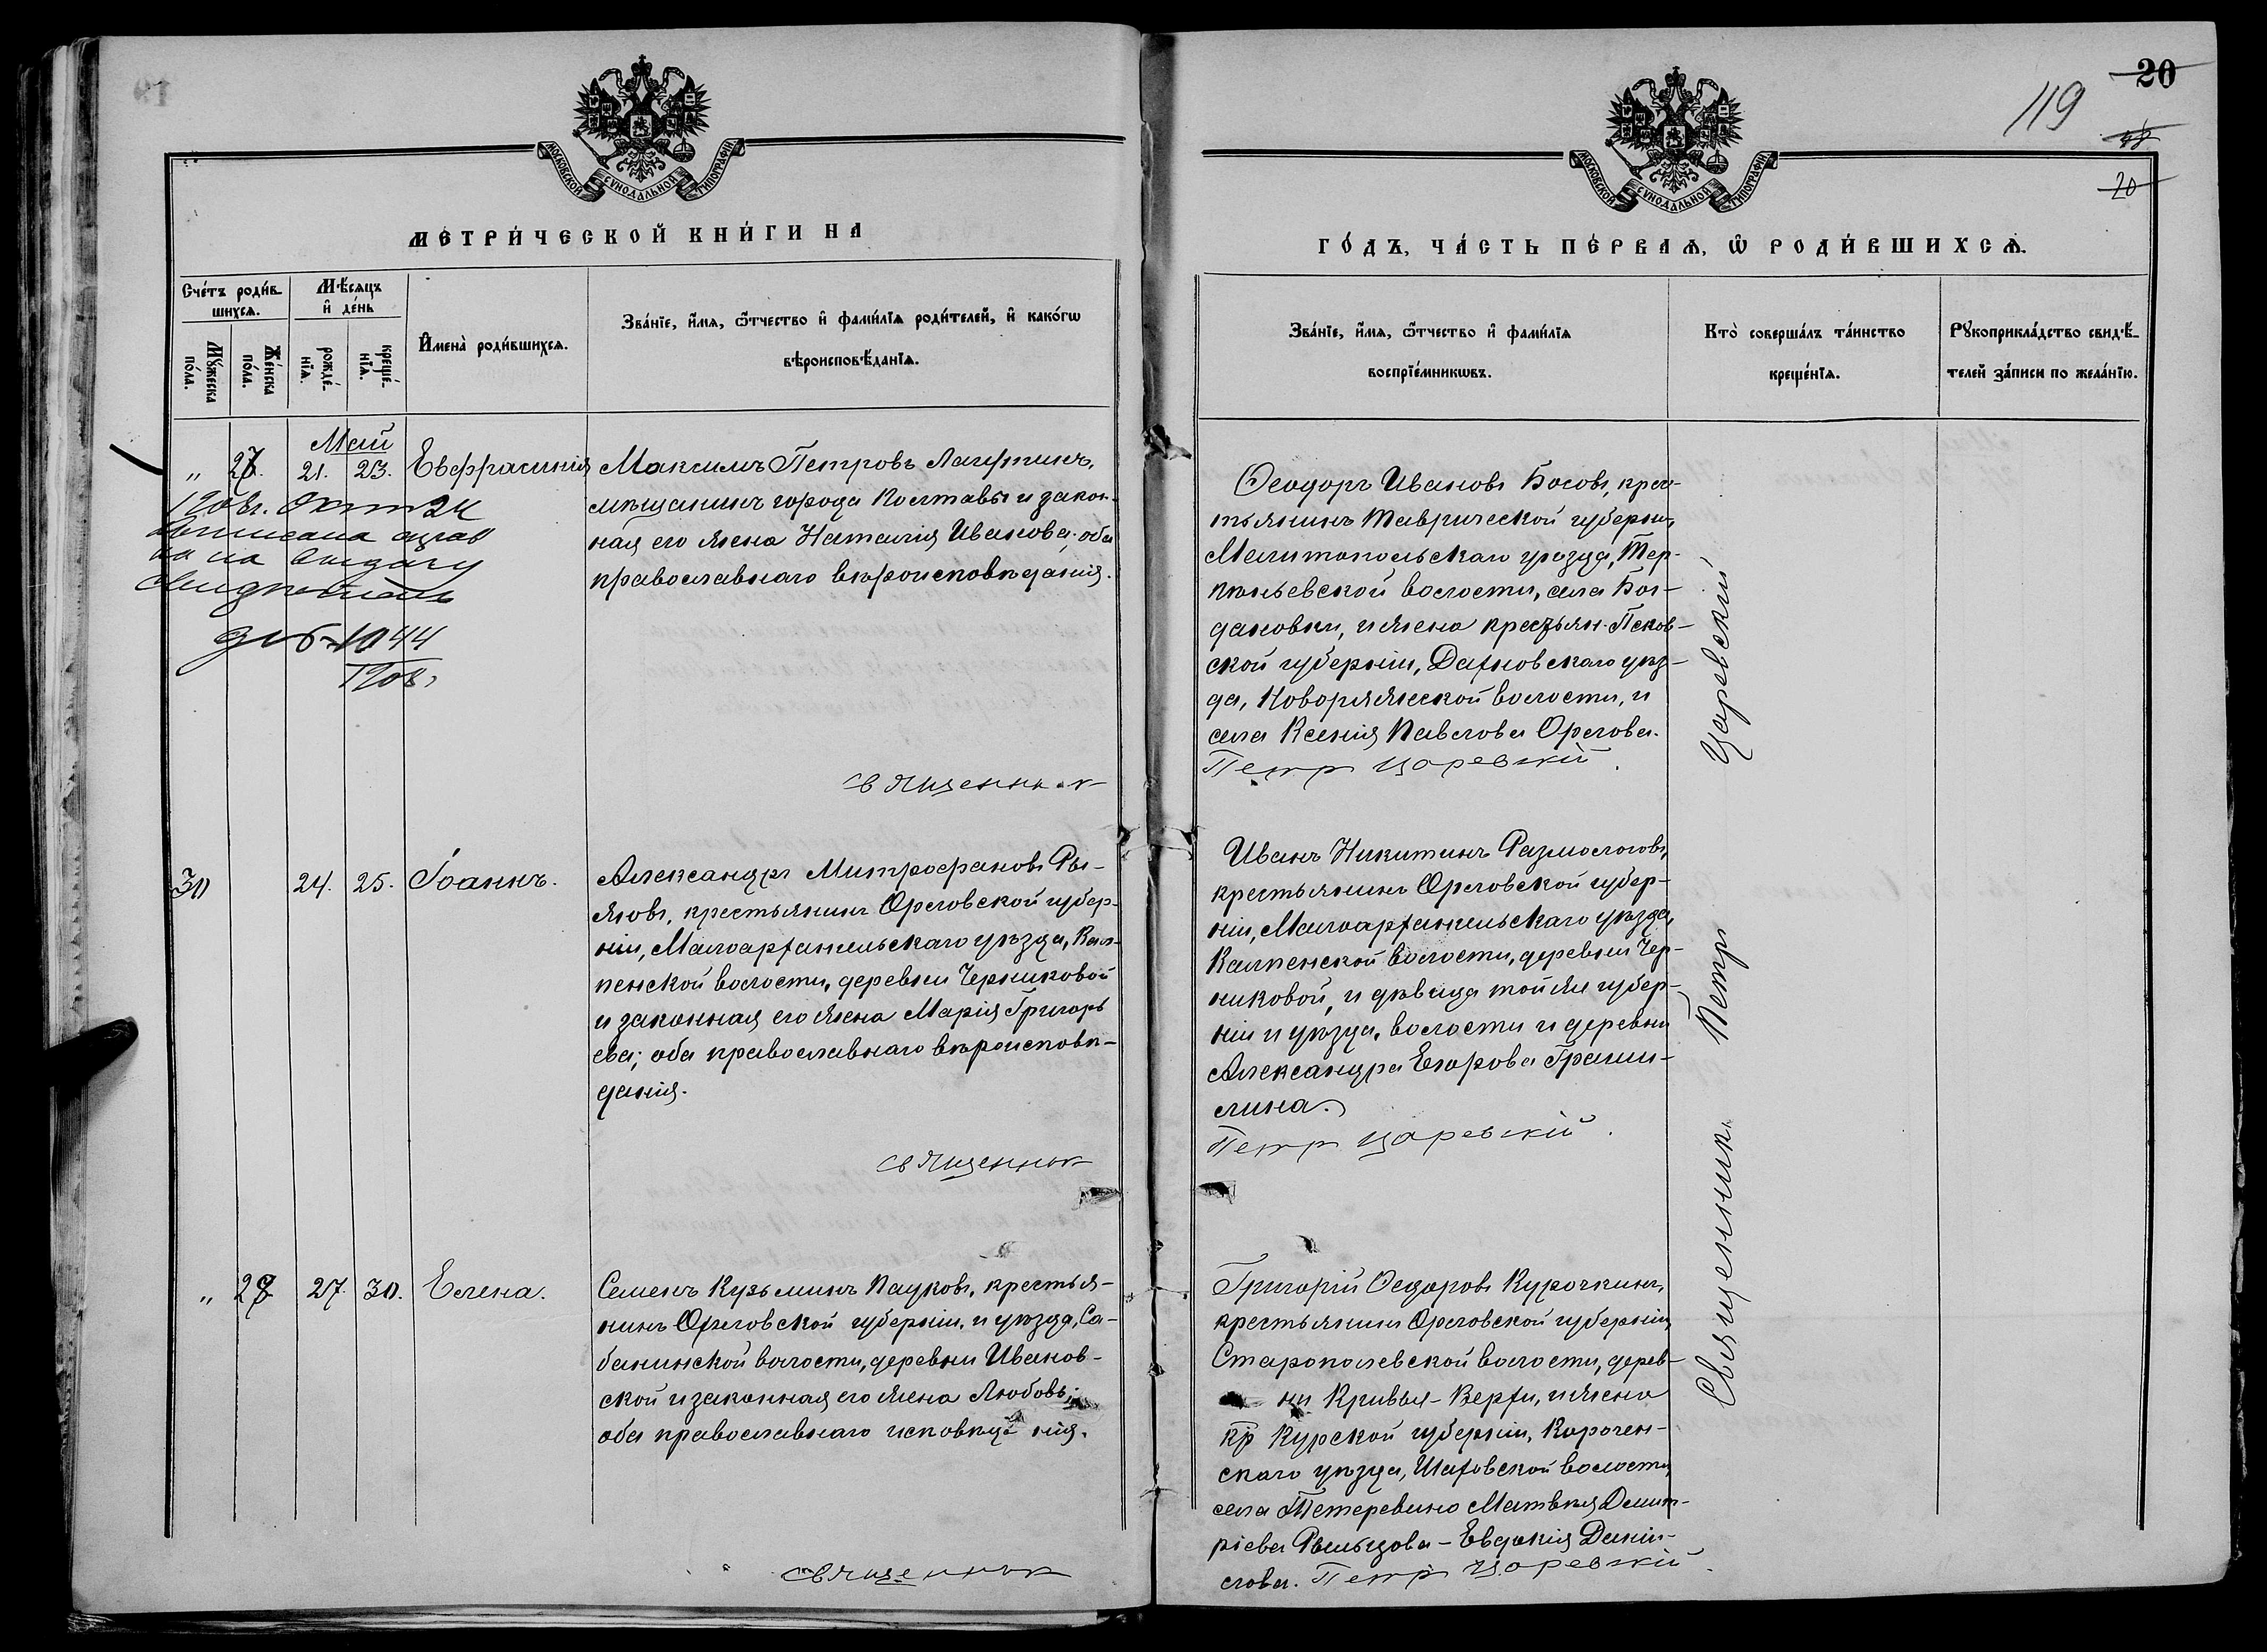 МОСКОВСКОЙ СѴНОДАЛЬНОЙ ТИПОГРАФІИ
МЕТРИ́ЧЕСКОЙ КНИ́ГИ НА
Сче́тъ роди́в-
шихсѧ.
Мѣ́сѧцъ
и҆ де́нь
Мꙋ́жеска
по́ла.
Же́нска
по́ла.
рожде́-
нїѧ.
креще́-
нїѧ.
И҆мена̀ роди́вшихсѧ.
Зва́нїе, и҆́мѧ, ѻ҆́тчество и҆ фами́лїѧ роди́телей, и҆ како́гѡ
вѣроисповѣ́данїѧ.
Май
„ 27. 21. 23. Евфрасинія
1908г. Окт 24
выписана справ
ка на выдачу
свидѣтель
№ 1044
1908.
Максимъ Петровъ Лахтинъ,
мѣщанинъ города Полтавы и закон-
ная его жена Наталія Иванова; оба
православнаго вѣроисповѣданія.
священник
30 24. 25. Іоаннъ.
Александръ Митрофановъ Ры-
жовъ, крестьянинъ Орловской губер-
ніи, Малоархангельскаго уѣзда, Кал-
пенской волости, деревни Черниковой
и законная его жена Марія Григорь
ева; оба православнаго вѣроисповѣ-
данія.
священник
„ 28 27. 30. Елена.
Семенъ Кузьминъ Пауковъ, крестья-
нинъ Орловской губерніи, и уѣзда, Са-
бинской волости, деревни Иванов-
ской и законная его жена Любовь;
оба православнаго исповѣданія.
священник
20
119
20
МОСКОВСКОЙ СѴНОДАЛЬНОЙ ТИПОГРАФІИ
ГО́ДЪ, ЧА́СТЬ ПЕ́РВАѦ, Ѡ҆ РОДИ́ВШИХСѦ.
Зва́нїе, и҆́мѧ, ѻ҆́тчество и҆ фами́лїѧ
воспрїе́мникѡвъ.
Кто̀ соверша́лъ та́инство
креще́нїѧ.
Рꙋкоприкла́дство свидѣ́-
телей за́писи по жела́нїю.
Ѳеодоръ Ивановъ Босовъ, кресть-
тьянинъ Таврической губерніи,
Мелитопольскаго уѣзда, Тер-
пѣньевской волости, села Бог-
дановки, и жена крестьян. Псков-
ской губерніи, уѣз-
да, Новоржевской волости, и
села Ксенія Павлова Орлова.
Петр Царевскій.
Иванъ Никитинъ Размологовъ,
крестьянинъ Орловской губер-
ніи, Малоархангельскаго уѣзда,
Калпенской волости, деревни Чер-
никовой, и дѣвица той же губер-
ніи и уѣзда, волости и деревни
Александра Егорова Грами-
лина.
Петр Царевскій.
Григорій Ѳедоровъ Курочкинъ,
крестьянинъ Орловской губерніи,
Старополевской волости, дерев-
ни Кривыя-Верхи, и жена
кр Курской губерніи, Корочен-
скаго уѣзда, Шаховской волости,
села Тетеревино Матвѣя Димит-
ріева Рыльцова - Евдокія Даніи-
лова. Петр Царевскій
Священникъ Петръ Царевский